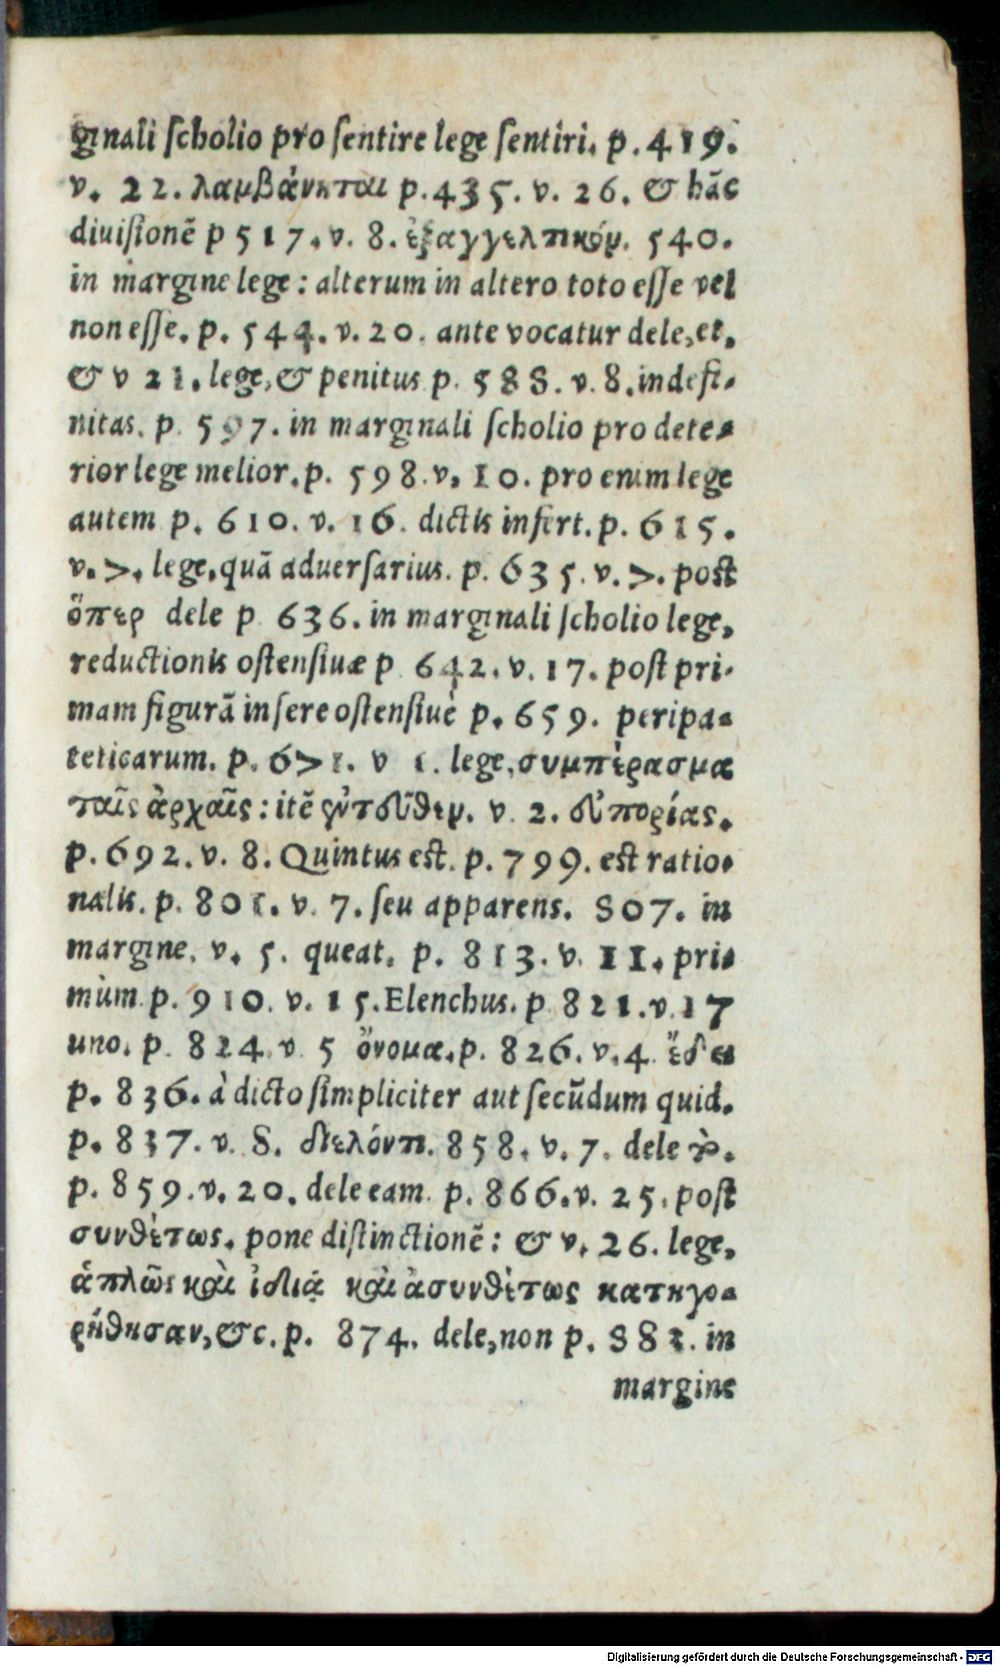 ginali ſcholio pro ſentire lege ſentiri. p. 419.
v. 22. λαμβάνηται p. 435. v. 26. & hāc
diuiſionē p 517. v. 8. ἐξαγγελτικόν. 540.
in margine lege: alterum in altero toto eſſe vel
non eſſe. p. 544. v. 20. ante vocatur dele, et,
& v 21. lege, & penitus p. 588. v. 8. indefi-
nitas. p. 597. in marginali ſcholio pro dete-
rior lege melior. p. 598. v. 10. pro enim lege
autem p. 610. v. 16. dictis infert. p. 615.
v. 7. lege, quā aduerſarius. p. 635. v. 7. post
ὅπερ dele p 636. in marginali ſcholio lege,
reductionis oſtenſiuæ p 642. v. 17. poſt pri-
mam figurā inſere oſtenſiuè p. 659. peripa-
teticarum. p. 671. v 1. lege, συμπέρασμα
ταῖς ἀρχαῖς: itē ἐντεῦθεν. v. 2. εὐπορίας.
p. 692. v. 8. Quintus est. p. 799. est ratio-
nalis. p. 801. v. 7. ſeu apparens. 807. in
margine. v. 5. queat. p. 813. v. 11. pri-
mùm p. 910. v. 15. Elenchus. p 821. v. 17
uno. p. 824. v 5 ὄνομα. p. 826. v. 4. ἔδει
p. 836. à dicto ſimpliciter aut ſecūdum quid.
p. 837. v. 8. διελόντι. 858. v. 7. dele
p. 859. v. 20. dele eam p. 866. v. 25. post
συνθέτως. pone diſtinctionē: & v. 26. lege,
ἁπλῶς καὶ ἰδίᾳ καὶ ἀσυνθέτως κατηγο-
ρήθησαν, &c. p. 874. dele, non p. 882. in
margine
Digitalisierung gefördert durch die Deutsche Forschungsgemeinschaft - DFG